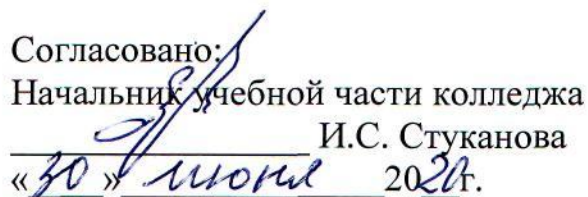 Согласовано:
Начальник учебной части колледжа
____________________ И.С. Стуканова
«30» июня 2020г.